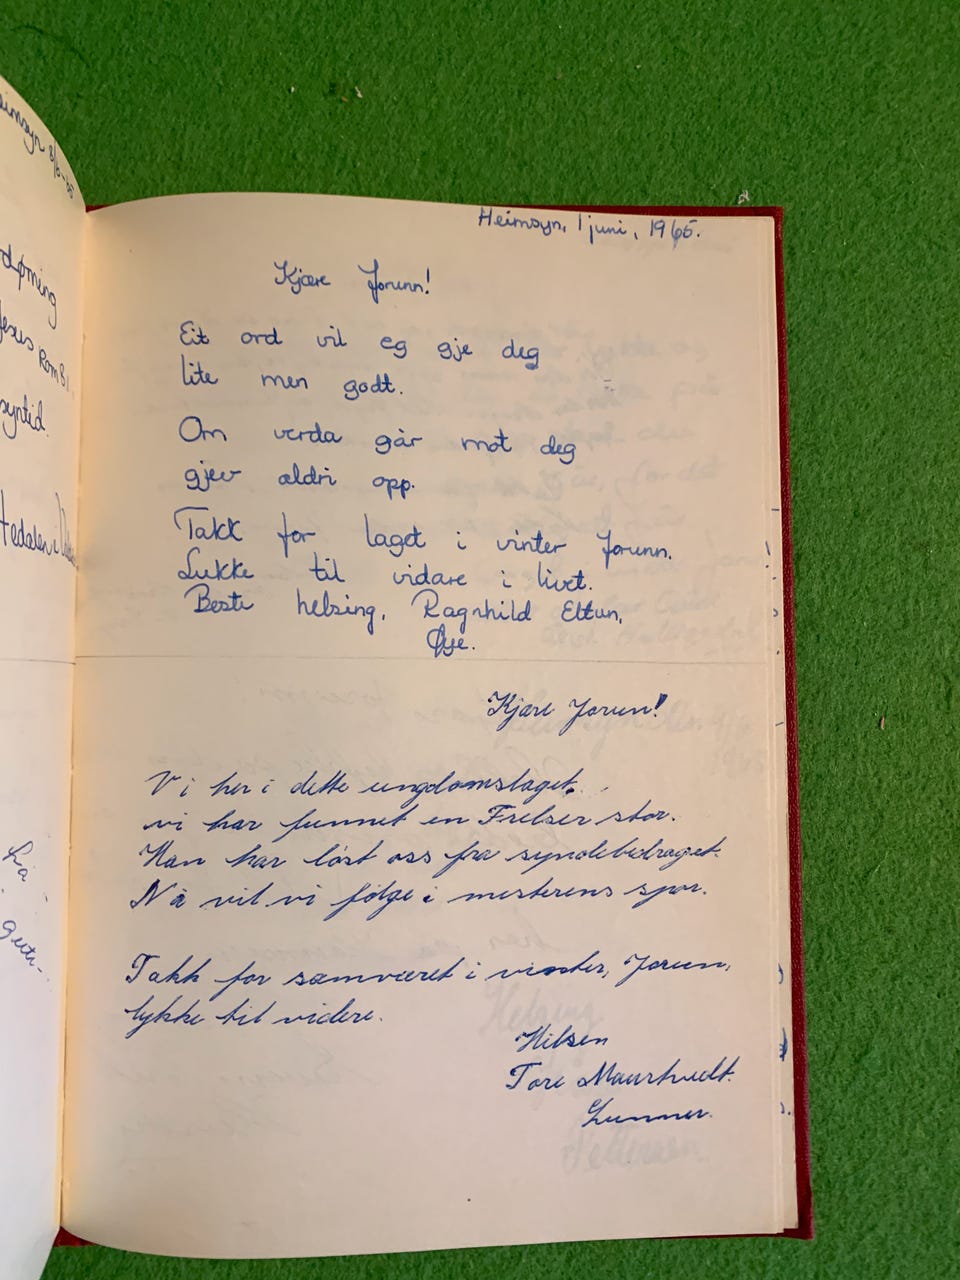 Heimsyn 8/6-65
Jesus Rom 8 1.
Hedalen i
Heimsyn, 1 juni, 1965.
Kjære Jorunn!
Eit ord vil eg gje deg
lite men godt.
Om verda går mot deg
gjev aldri opp.
Takk for laget i vinter Jorunn.
Lukke til vidare i livet.
Beste helsing, Ragnhild Eltun,
Øye.
Kjære Jorun!
Vi her i dette ungdomslaget.
vi har funnet en Frelser stor.
Han har løst oss fra syndebedraget.
Nå vil vi følge i mesterens spor.
Takk for samværet i vinter, Jorun,
lykke til videre.
Hilsen
Tore Maurtvedt.
Lunner.